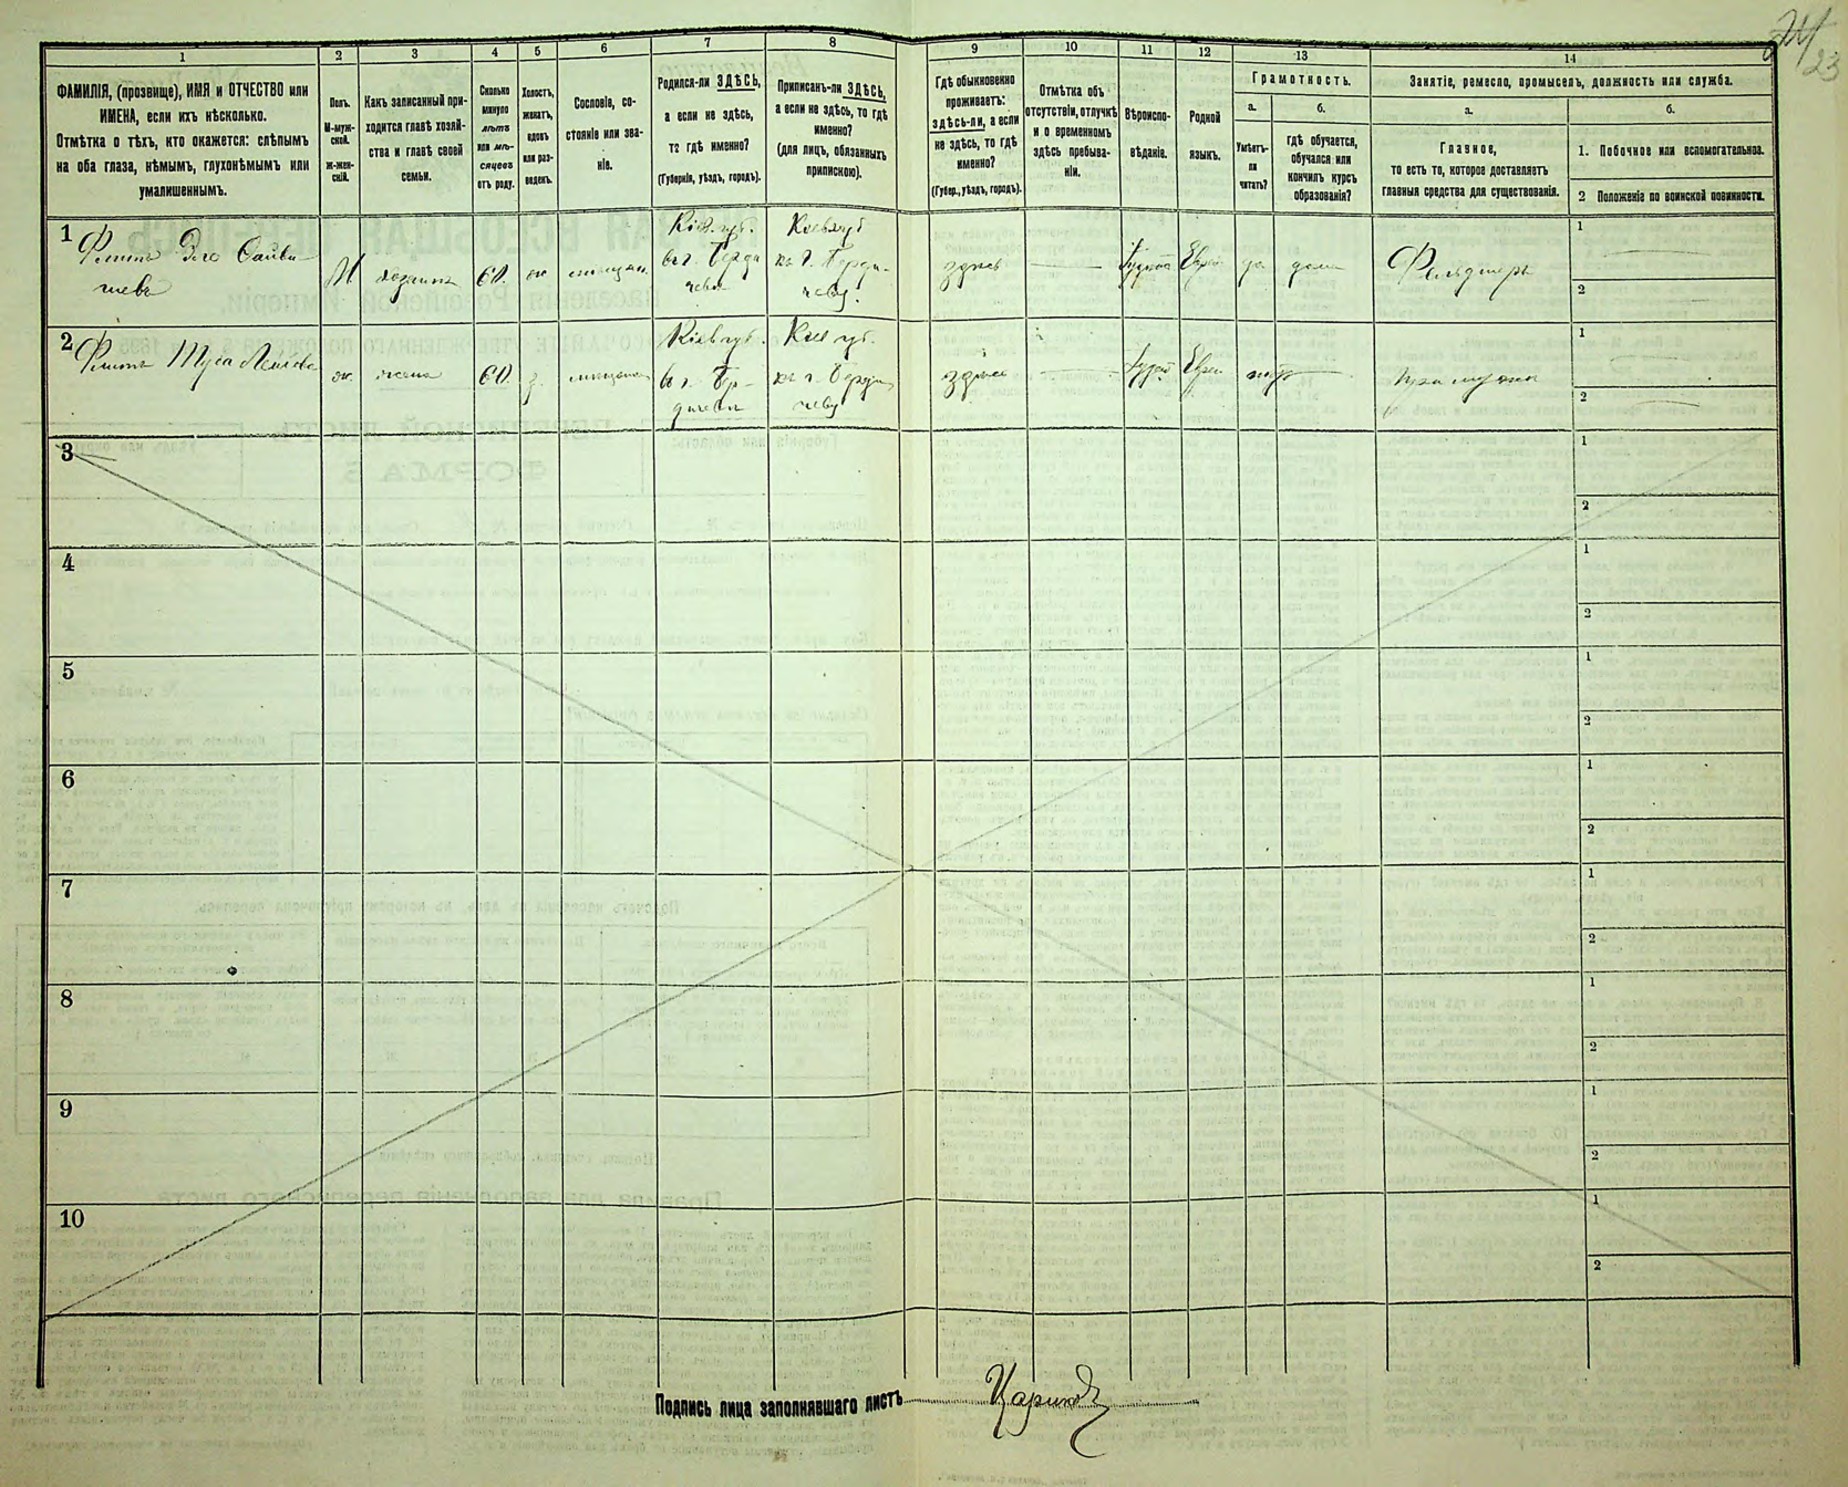 24
23
1
2
3
4
5
6
7
8
9
10
11
12
13
14
ФАМИЛІЯ, (прозвище), ИМЯ и ОТЧЕСТВО или
ИМЕНА, если ихъ нѣсколько.
Отмѣтка о тѣхъ, кто окажется: слѣпымъ
на оба глаза, нѣмымъ, глухонѣмымъ или
умалишеннымъ.
Полъ.
М-муж-
ской.
ж-жен-
скій.
Какъ записанный при-
ходится главѣ хозяй-
ства и главѣ своей
семьи.
Сколько
минуло
лѣтъ
или мѣ-
сяцевъ
отъ роду.
Холостъ,
женатъ,
вдовъ
или раз-
веденъ.
Сословіе, со-
стояніе или зва-
ніе.
Родился-ли ЗДѢСЬ,
а если не здѣсь,
то гдѣ именно?
(Губернія, уѣздъ, городъ).
Приписанъ-ли ЗДѢСЬ,
а если не здѣсь, то гдѣ
именно?
(для лицъ, обязанныхъ
припискою).
Гдѣ обыкновенно
проживаетъ:
здѣсь-ли, а если
не здѣсь, то гдѣ
именно?
(Губер., уѣздъ, городъ).
Отмѣтка объ
отсутствіи, отлучкѣ
и о временномъ
здѣсь пребыва-
ніи.
Вѣроиспо-
вѣданіе.
Родной
языкъ.
Грамотность.
а.
б.
Умѣетъ-
ли
читать?
гдѣ обучается,
обучался или
кончилъ курсъ
образованія?
Занятіе, ремесло, промыселъ, должность или служба.
а.
б.
Главное,
то есть то, которое доставляетъ
главныя средства для существованія.
1. Побочное или вспомогательное.
2 Положеніе по воинской повинности.
1
М
хозяинъ
60.
ж
мѣщан.
Кіев. губ.
въ г. Берди
чевѣ
Кіев губ
къ г. Берди-
чеву.
здѣсь
Іудей
Еврей
да
дома
Фельдшеръ
1
2
2
ж.
жена
60
з.
мѣщанка
Кіев губ.
въ г. Бер-
дичевѣ
Кіев губ.
къ г. Берди
чеву
здѣсь
Іудей
Еврей
нѣтъ
при мужѣ
1
2
3
1
2
4
1
2
5
1
2
6
1
2
7
1
2
8
1
2
9
1
2
10
1
2
Подпись лица заполнявшаго листъ